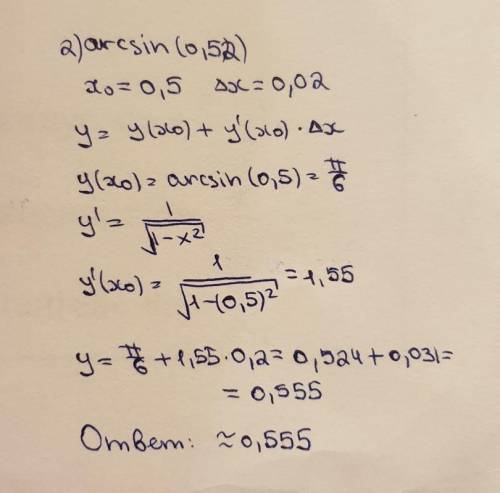 2) arcsin(0,52)
x₀ = 0,5 Δx = 0,02
y = y(x₀) + y'(x₀) · Δx
y(x₀) = arcsin(0,5) = π/6
y' = 1/√(1-x²)
y'(x₀) = 1/√(1-(0,5)²) = 1,55
y = π/6 + 1,55 · 0,2 = 0,524 + 0,031 =
= 0,555
Ответ: ≈ 0,555